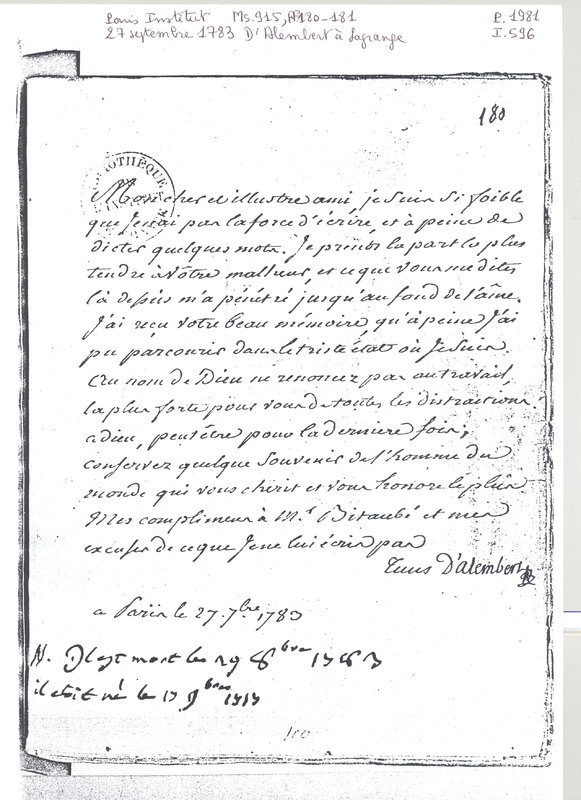 Paris Institut Ms. 915, ff 180-181 P. 1981
27 septembre 1783 D'Alembert à Lagrange I. 596
180
BIOTHÈQUE
Mon cher et illustre ami, je suis si foible
que Je n'ai pas la force d'écrire, et à peine de
dicter quelques mots. Je prens la part la plus
tendre à vôtre malheur, et ce que vous me dites
là dessus m'a pénétré jusqu'au fond de l'âme.
J'ai reçu votre beau mémoire, qu'à peine J'ai
pu parcourir dans le triste état où Je suis.
Au nom de Dieu ne renoncez pas au travail,
la plus forte pour vous de toutes les distractions.
adieu, peut être pour la derniere fois;
conservez quelque souvenir de l'homme du
monde qui vous chérit et vous honore le plus
Mes complimens à Mr. Bitaubé et mes
excuses de ce que Je ne lui écris pas
Tuus D'Alembert
a Paris le 27. 7bre 1783
N. Il est mort le 29 8bre 1783
il étoit né le 17 9bre 1717
180